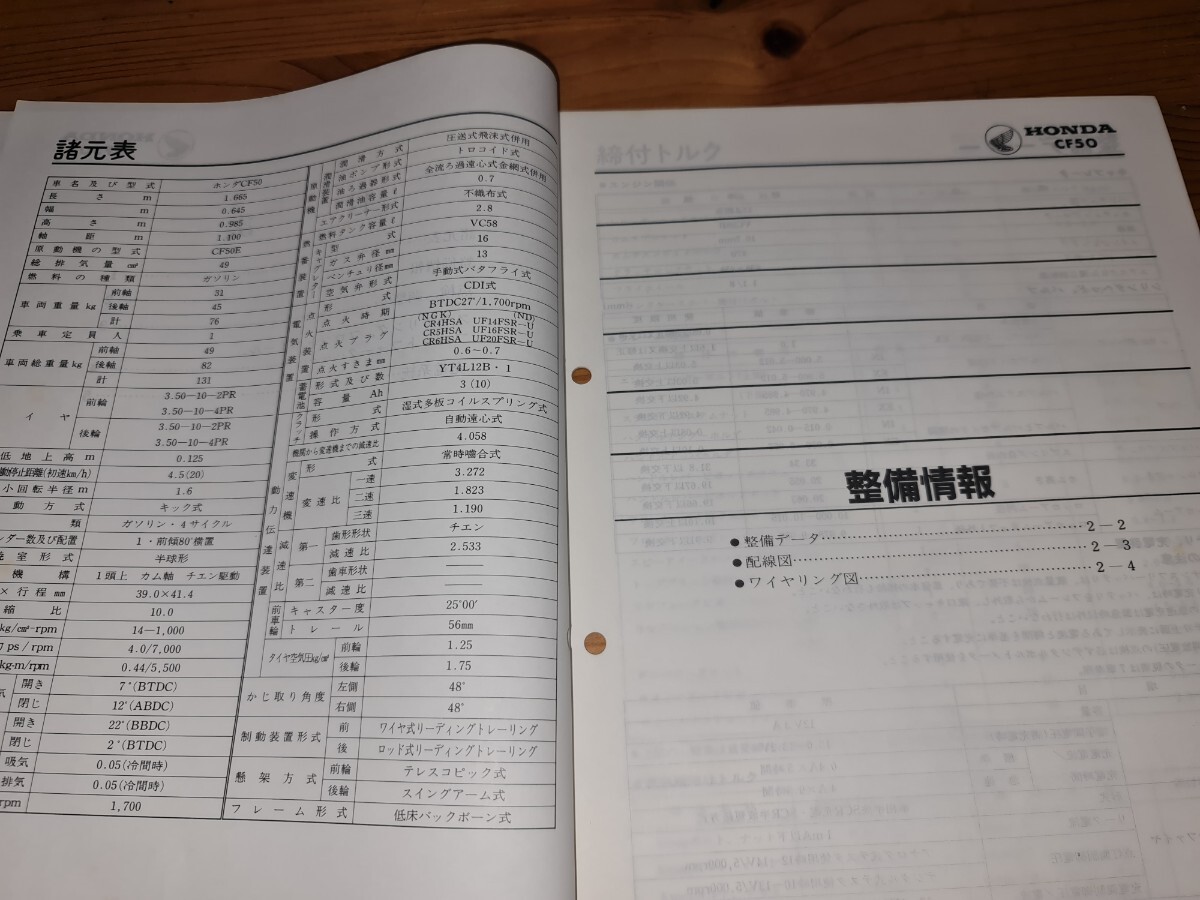 諸元表
車名及び型式 ホンダCF50
長さ m 1.665
幅 m 0.645
高さ m 0.985
軸距 m 1.100
原動機の型式 CF50E
総排気量 cm³ 49
燃料の種類 ガソリン
車両重量kg 前輪 31
後輪 45
計 76
乗車定員 人 1
車両総重量kg 前輪 49
後輪 82
計 131
イヤ 前輪 3.50-10-2PR
3.50-10-4PR
後輪 3.50-10-2PR
3.50-10-4PR
低地上高 m 0.125
停止距離(初速km/h) 4.5(20)
小回転半径 m 1.6
動方式 キック式
類 ガソリン・4サイクル
ンダー数及び配置 1・前傾80°横置
室形式 半球形
機構 1頭上 カム軸 チエン駆動
×行程 mm 39.0×41.4
縮比 10.0
kg/cm²-rpm 14-1,000
ps/rpm 4.0/7,000
kg-m/rpm 0.44/5,500
気 開き 7°(BTDC)
閉じ 12°(ABDC)
開き 22°(BBDC)
閉じ 2°(BTDC)
吸気 0.05(冷間時)
排気 0.05(冷間時)
rpm 1,700
原動機 潤滑装置 潤滑方式 圧送式飛沫式併用
油ポンプ形式 トロコイド式
油ろ過器形式 全流ろ過遠心式金網式併用
潤滑油容量 ℓ 0.7
エアクリーナー形式 不織布式
燃料装置 燃料タンク容量 ℓ 2.8
キャブレター 型式 VC58
ガス弁径 mm 16
ベンチュリ径 mm 13
空気弁形式 手動式バタフライ式
電気装置 点火装置 形式 CDI式
点火時期 BTDC27°/1,700rpm
点火プラグ (NGK) (ND)
CR4HSA UF14FSR-U
CR5HSA UF16FSR-U
CR6HSA UF20FSR-U
点火すきま mm 0.6~0.7
蓄電池 形式及び数 YT4L12B・1
容量 Ah 3(10)
クラッチ 形式 湿式多板コイルスプリング式
操作方式 自動遠心式
機関から変速機までの減速比 4.058
動力伝達装置 変速機 形式 常時噛合式
変速比 一速 3.272
二速 1.823
三速 1.190
減速比 第一 歯形形状 チエン
減速比 2.533
第二 歯車形状 ——
減速比 ——
前車輪 キャスター度 25°00′
トレール 56mm
タイヤ空気圧kg/cm² 前輪 1.25
後輪 1.75
かじ取り角度 左側 48°
右側 48°
制動装置形式 前 ワイヤ式リーディングトレーリング
後 ロッド式リーディングトレーリング
懸架方式 前輪 テレスコピック式
後輪 スイングアーム式
フレーム形式 低床バックボーン式
HONDA
CF50
整備情報
●整備データ……………………………2-2
●配線図……………………………2-3
●ワイヤリング図……………………………2-4